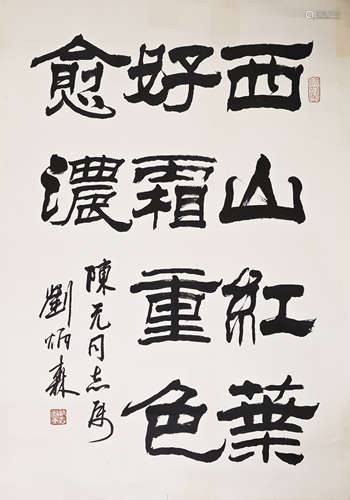 西山紅葉
好霜重色
愈濃
陳元同志属
劉炳森